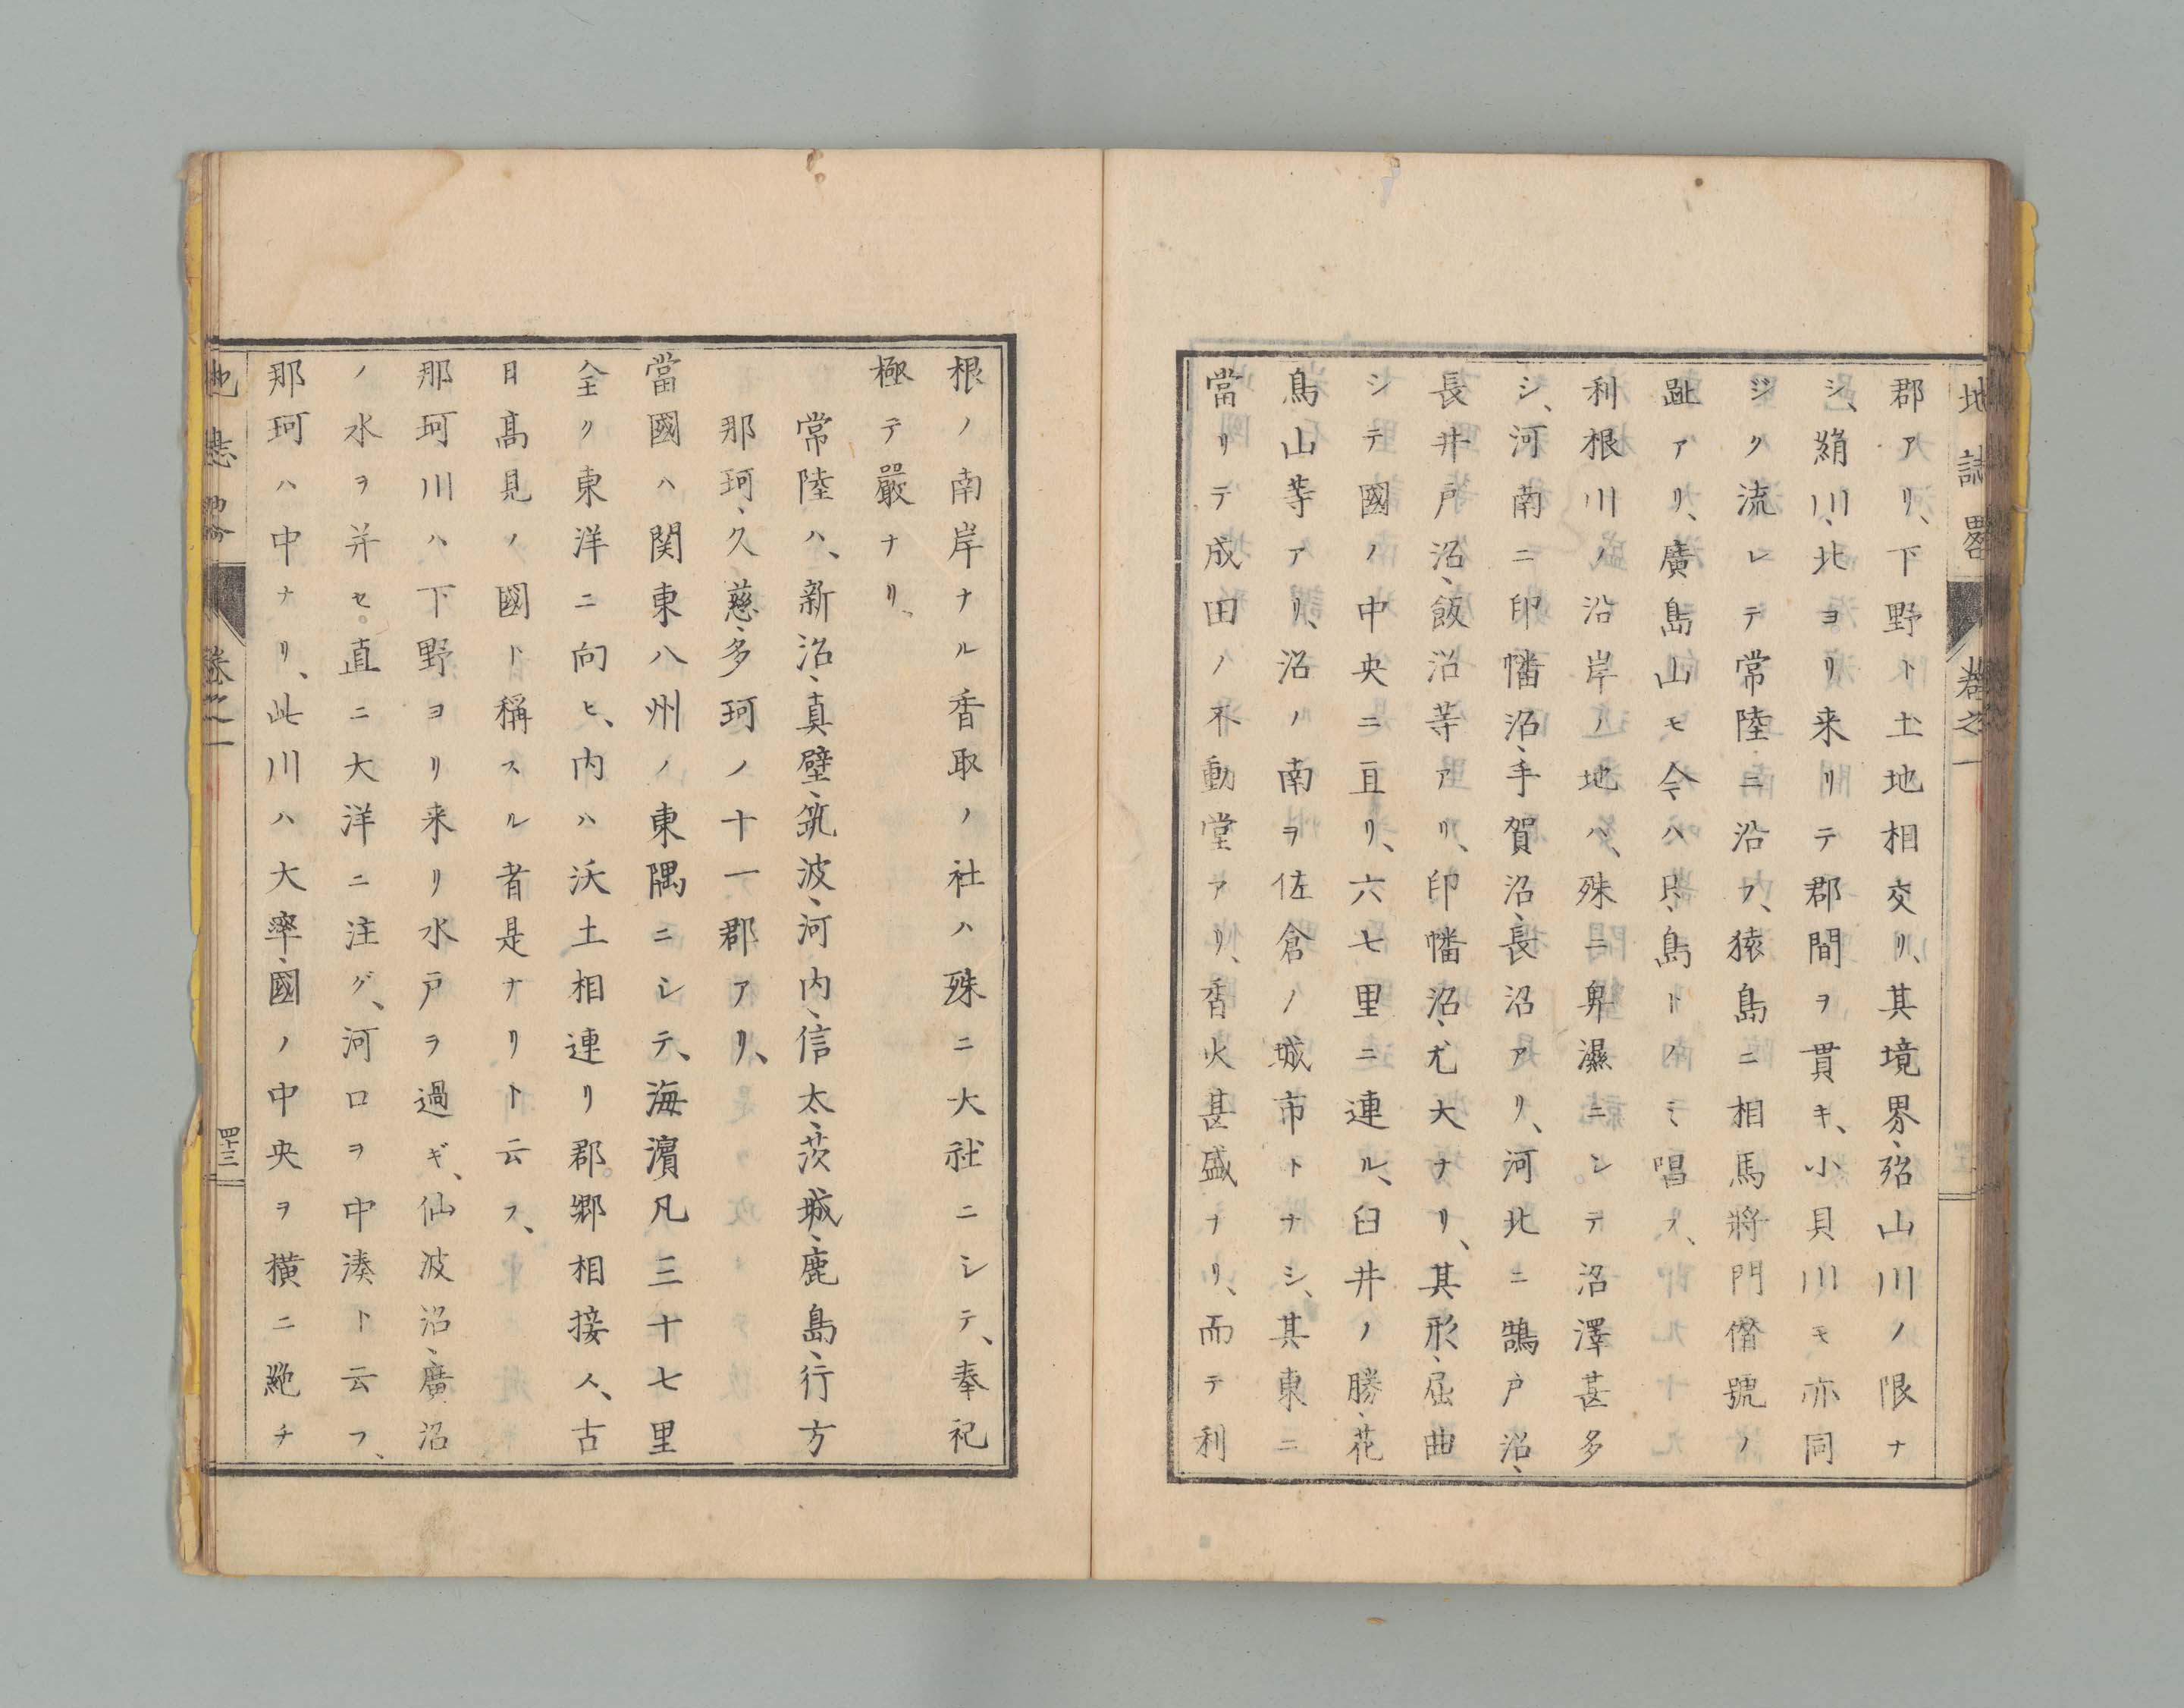 地誌畧 卷之一
郡アリ、下野ト土地相交リ、其境界、殆山川ノ限ナ
シ、絹川、北ヨリ来リテ郡間ヲ貫キ、小貝川モ亦同
ジク流レテ常陸ニ沿フ、猿島ニ相馬將門僭號ノ
趾アリ、廣島山モ今ハ只、島トノミ唱フ、
利根川ノ沿岸ノ地ハ、殊ニ卑濕ニシテ沼澤甚多
シ、河南ニ印幡沼、手賀沼、長沼アリ、河北ニ鵠戸沼、
長井戸沼、飯沼等アリ、印幡沼、尤大ナリ、其形、屈曲
シテ國ノ中央ニ亘リ、六七里ニ連ル、臼井ノ勝、花
鳥山等アリ、沼ノ南ヲ佐倉ノ城市トナシ、其東ニ
當リテ成田ノ不動堂アリ、香火甚盛ナリ、而テ利
根ノ南岸ナル香取ノ社ハ殊ニ大社ニシテ、奉祀
極テ嚴ナリ、
常陸ハ、新治、真壁、筑波、河内、信太、茨城、鹿島、行方
那珂、久慈、多珂ノ十一郡アリ、
當國ハ関東八州ノ東隅ニシテ、海濵凡三十七里
全ク東洋ニ向ヒ、内ハ沃土相連リ郡。郷相接ス、古
日髙見ノ國ト稱スル者是ナリト云フ、
那珂川ハ、下野ヨリ来リ水戸ヲ過ギ、仙波沼、廣沼
ノ水ヲ并セ。直ニ大洋ニ注グ、河口ヲ中湊ト云フ、
那珂ハ中ナリ、此川ハ大率、國ノ中央ヲ横ニ絶チ
地誌畧 卷之一 四十三